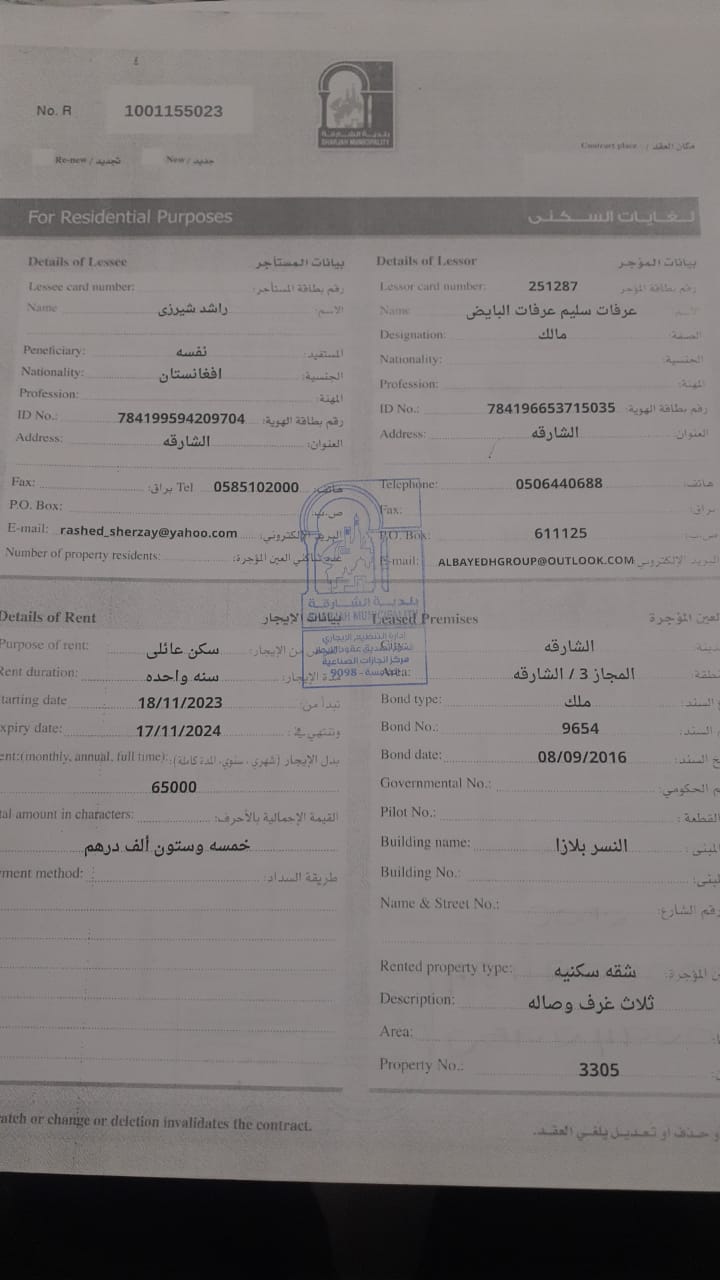 No. R 1001155023
بلدية الشارقة
SHARJAH MUNICIPALITY
Re-new / تجديد New / جديد
Contract place / مكان العقد :
For Residential Purposes لغايات السكنى
Details of Lessee بيانات المستأجر
Lessee card number: رقم بطاقة المستأجر:
Name راشد شيرزى الاسم:
Peneficiary: نفسه المستفيد:
Nationality: افغانستان الجنسية:
Profession: المهنة:
ID No.: 784199594209704 رقم بطاقة الهوية:
Address: الشارقه العنوان:
Fax: براق: Tel 0585102000 هاتف:
P.O. Box: ص.ب:
E-mail: rashed_sherzay@yahoo.com البريد الإلكتروني:
Number of property residents: عدد شاكني العين المؤجرة:
Details of Lessor بيانات المؤجر
Lessor card number: 251287 رقم بطاقة المؤجر
Name عرفات سليم عرفات البايض الاسم:
Designation: مالك الصفة:
Nationality: الجنسية:
Profession: المهنة:
ID No.: 784196653715035 رقم بطاقة الهوية:
Address: الشارقه العنوان:
Telephone: 0506440688 هاتف:
Fax: براق:
P.O. Box: 611125 ص.ب:
E-mail: ALBAYEDHGROUP@OUTLOOK.COM البريد الإلكتروني
بلدية الشارقة
SHARJAH MUNICIPALITY
إدارة التنظيم الإيجاري
مركز انجازات الصناعية
الخامسة - 9098
Details of Rent بيانات الإيجار
Purpose of rent: سكن عائلى من الإيجار:
Rent duration: سنه واحده مدة الإيجار:
tarting date 18/11/2023 تبدأ من:
xpiry date: 17/11/2024 وتنتهي في:
ent:(monthly, annual, full time): بدل الإيجار (شهري ، سنوي، المدة كاملة):
65000
tal amount in characters: القيمة الإجمالية بالأحرف:
خمسه وستون ألف درهم
ment method: طريقة السداد:
Leased Premises العين المؤجرة
City: الشارقه
Area: المجاز 3 / الشارقه
Bond type: ملك السند:
Bond No.: 9654 السند:
Bond date: 08/09/2016 السند:
Governmental No.: الحكومي:
Pilot No.: القطعة:
Building name: النسر بلازا المبنى:
Building No.:
Name & Street No.: رقم الشارع:
Rented property type: شقه سكنيه المؤجرة:
Description: ثلاث غرف وصاله
Area:
Property No.: 3305
atch or change or deletion invalidates the contract. و حذف او تعديل يلغي العقد.